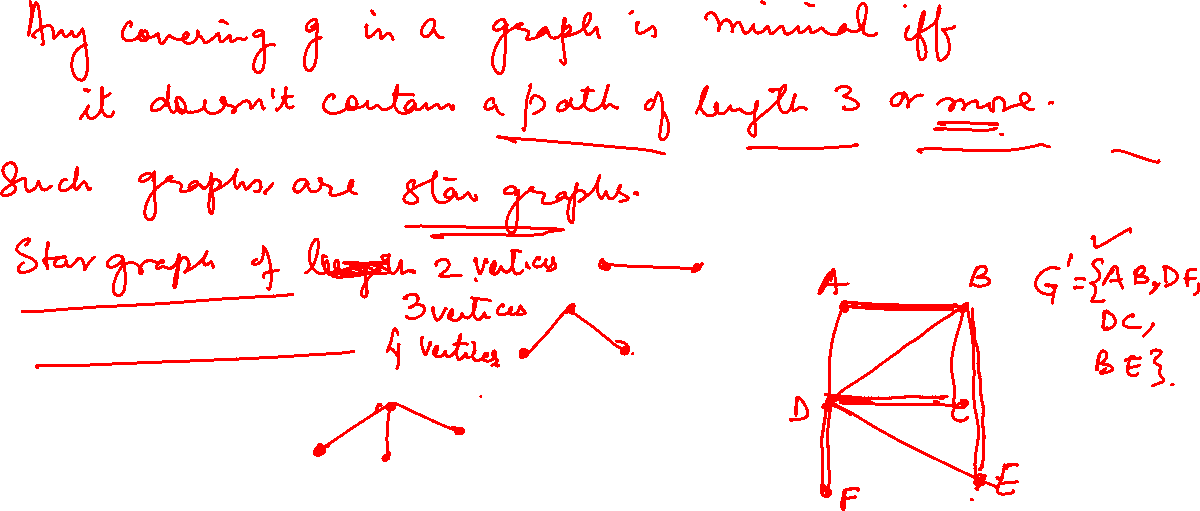 Any covering g in a graph is minimal iff
it doesn't contain a path of length 3 or more.
Such graphs are star graphs.
Star graph of 2 vertices
3 vertices
4 vertices
A B
D C
F E
G' = {AB, DF,
DC,
BE}.